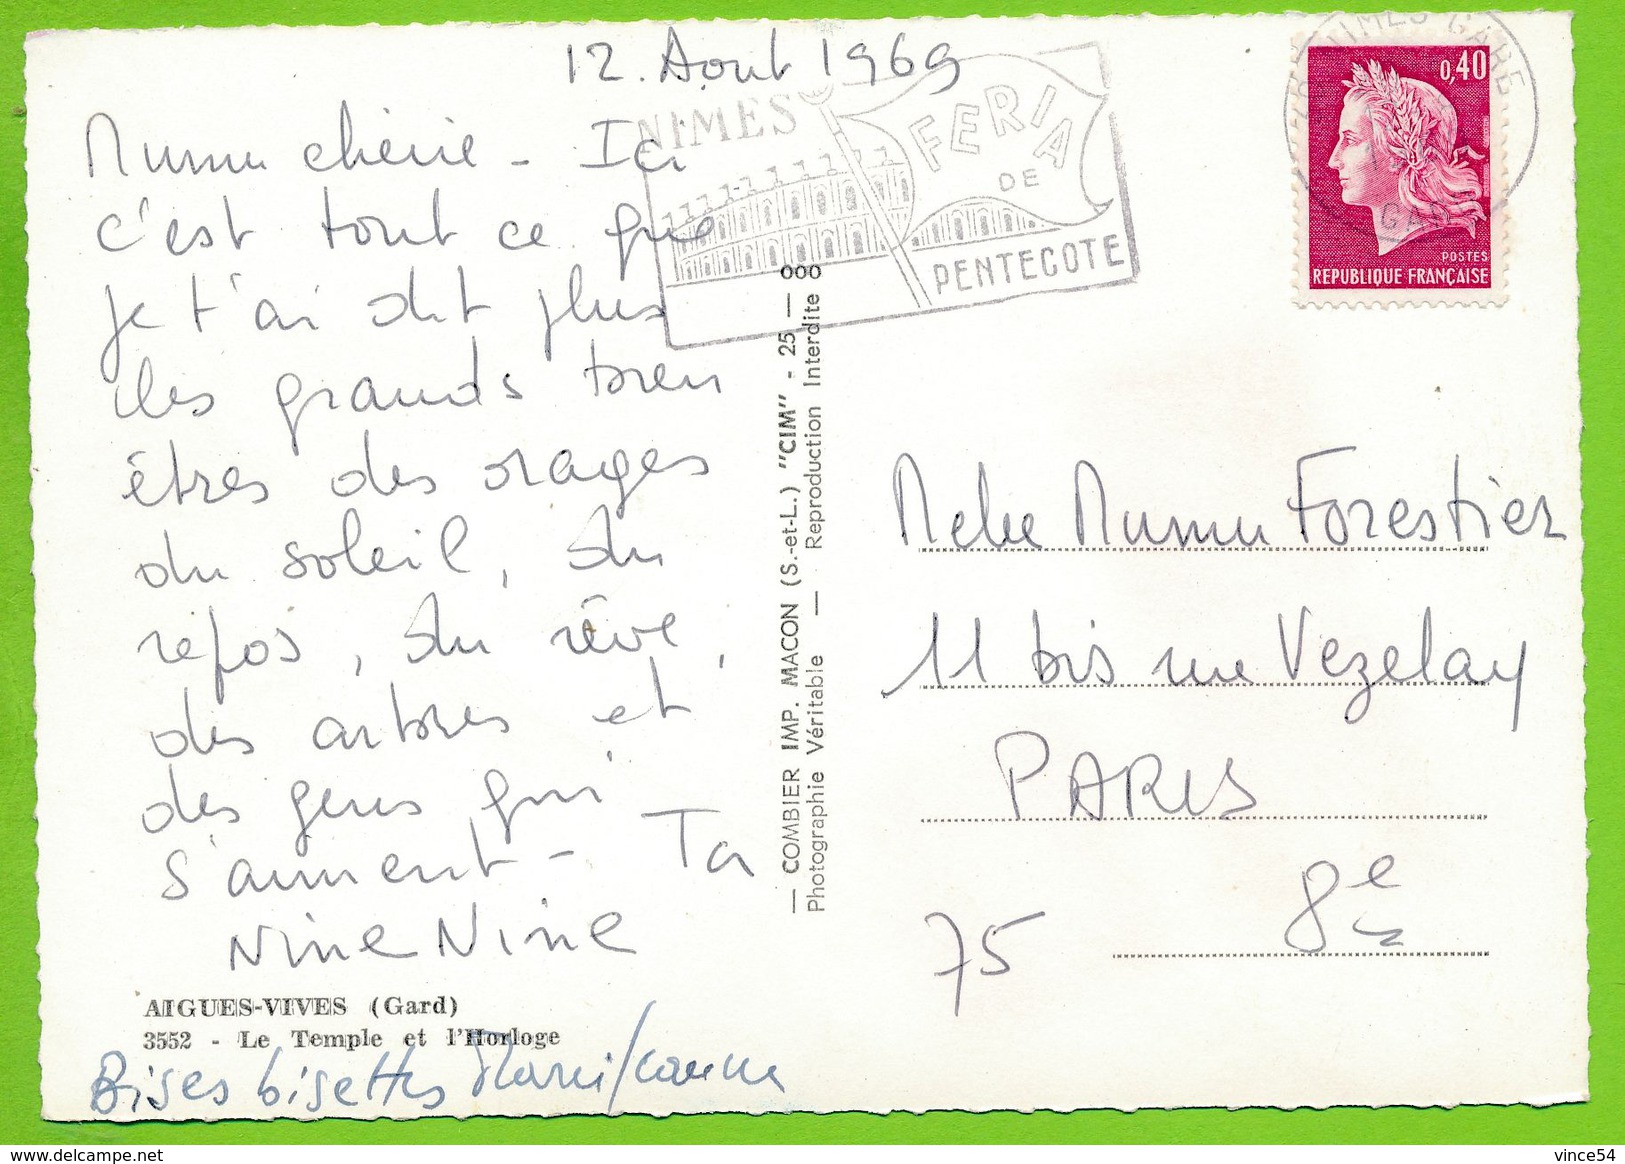 12. Aout 1969
Mumu cherie - Ici
c'est tout ce que
je t'ai dit plus
les grands bien
êtres des orages
du soleil, du
repos, du rêve,
des arbres et
des gens qui
s'aiment - Ta
Nine Nine
AIGUES-VIVES (Gard)
3552 - Le Temple et l'Horloge
Bises bisettes
NIMES
FERIA
DE
PENTECOTE
— COMBIER IMP. MACON (S.-et-L.) "CIM" - 25 — 000
Photographie Véritable — Reproduction Interdite
NIMES GARE
GARD
0,40
POSTES
REPUBLIQUE FRANÇAISE
Mumu Forestier
11 bis rue Vezelay
PARIS
8e
75
delcampe.net
vince54